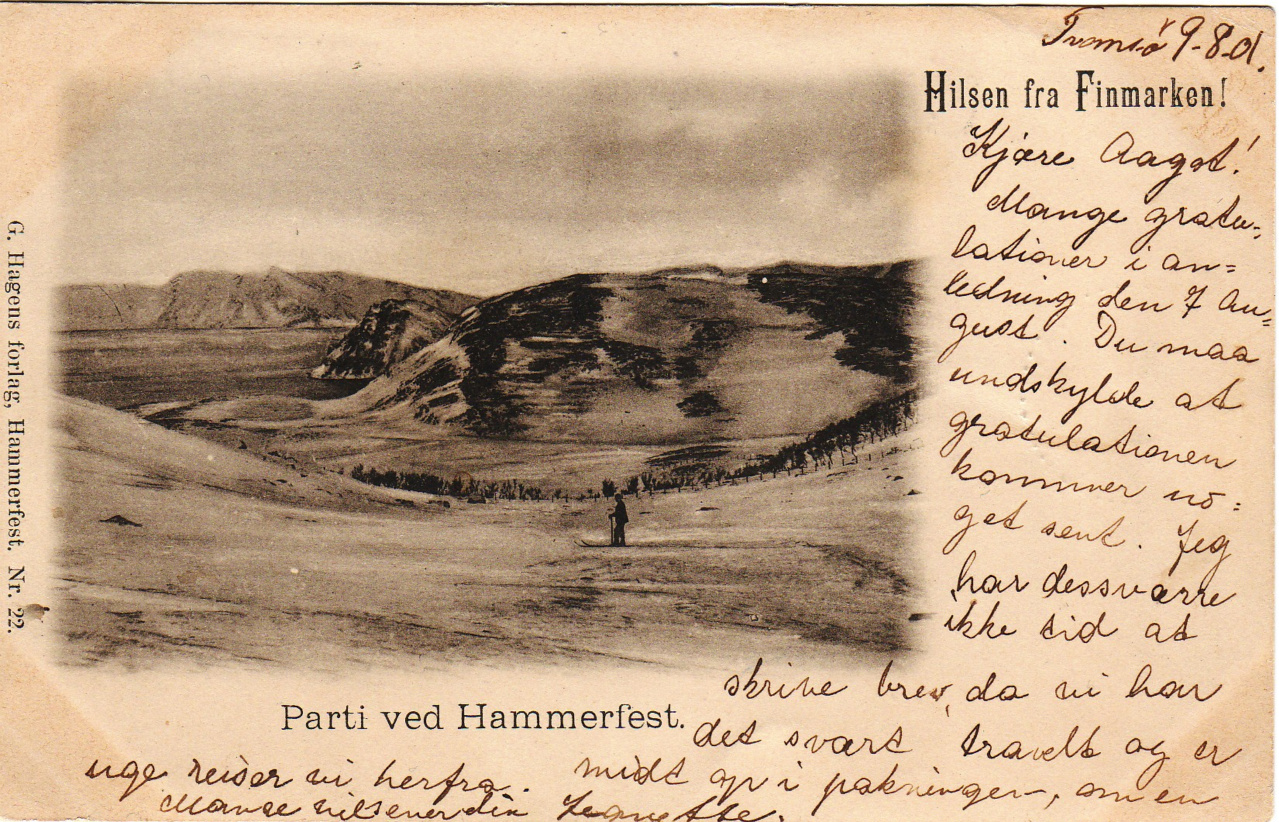 Tromsö 9-8-01.
Hilsen fra Finmarken!
Kjære Aagot!
Mange gratu-
lationer i an=
ledning den 7 Au=
gust. Du maa
undskylde at
gratulationen
kommer no=
get sent. Jeg
har dessværre
ikke tid at
skrive brev, da vi har
det svært travelt og er
midt op i pakningen, om en
uge reiser vi herfra.
Mange hilsener din
Parti ved Hammerfest.
G. Hagens forlag, Hammerfest. Nr. 22.